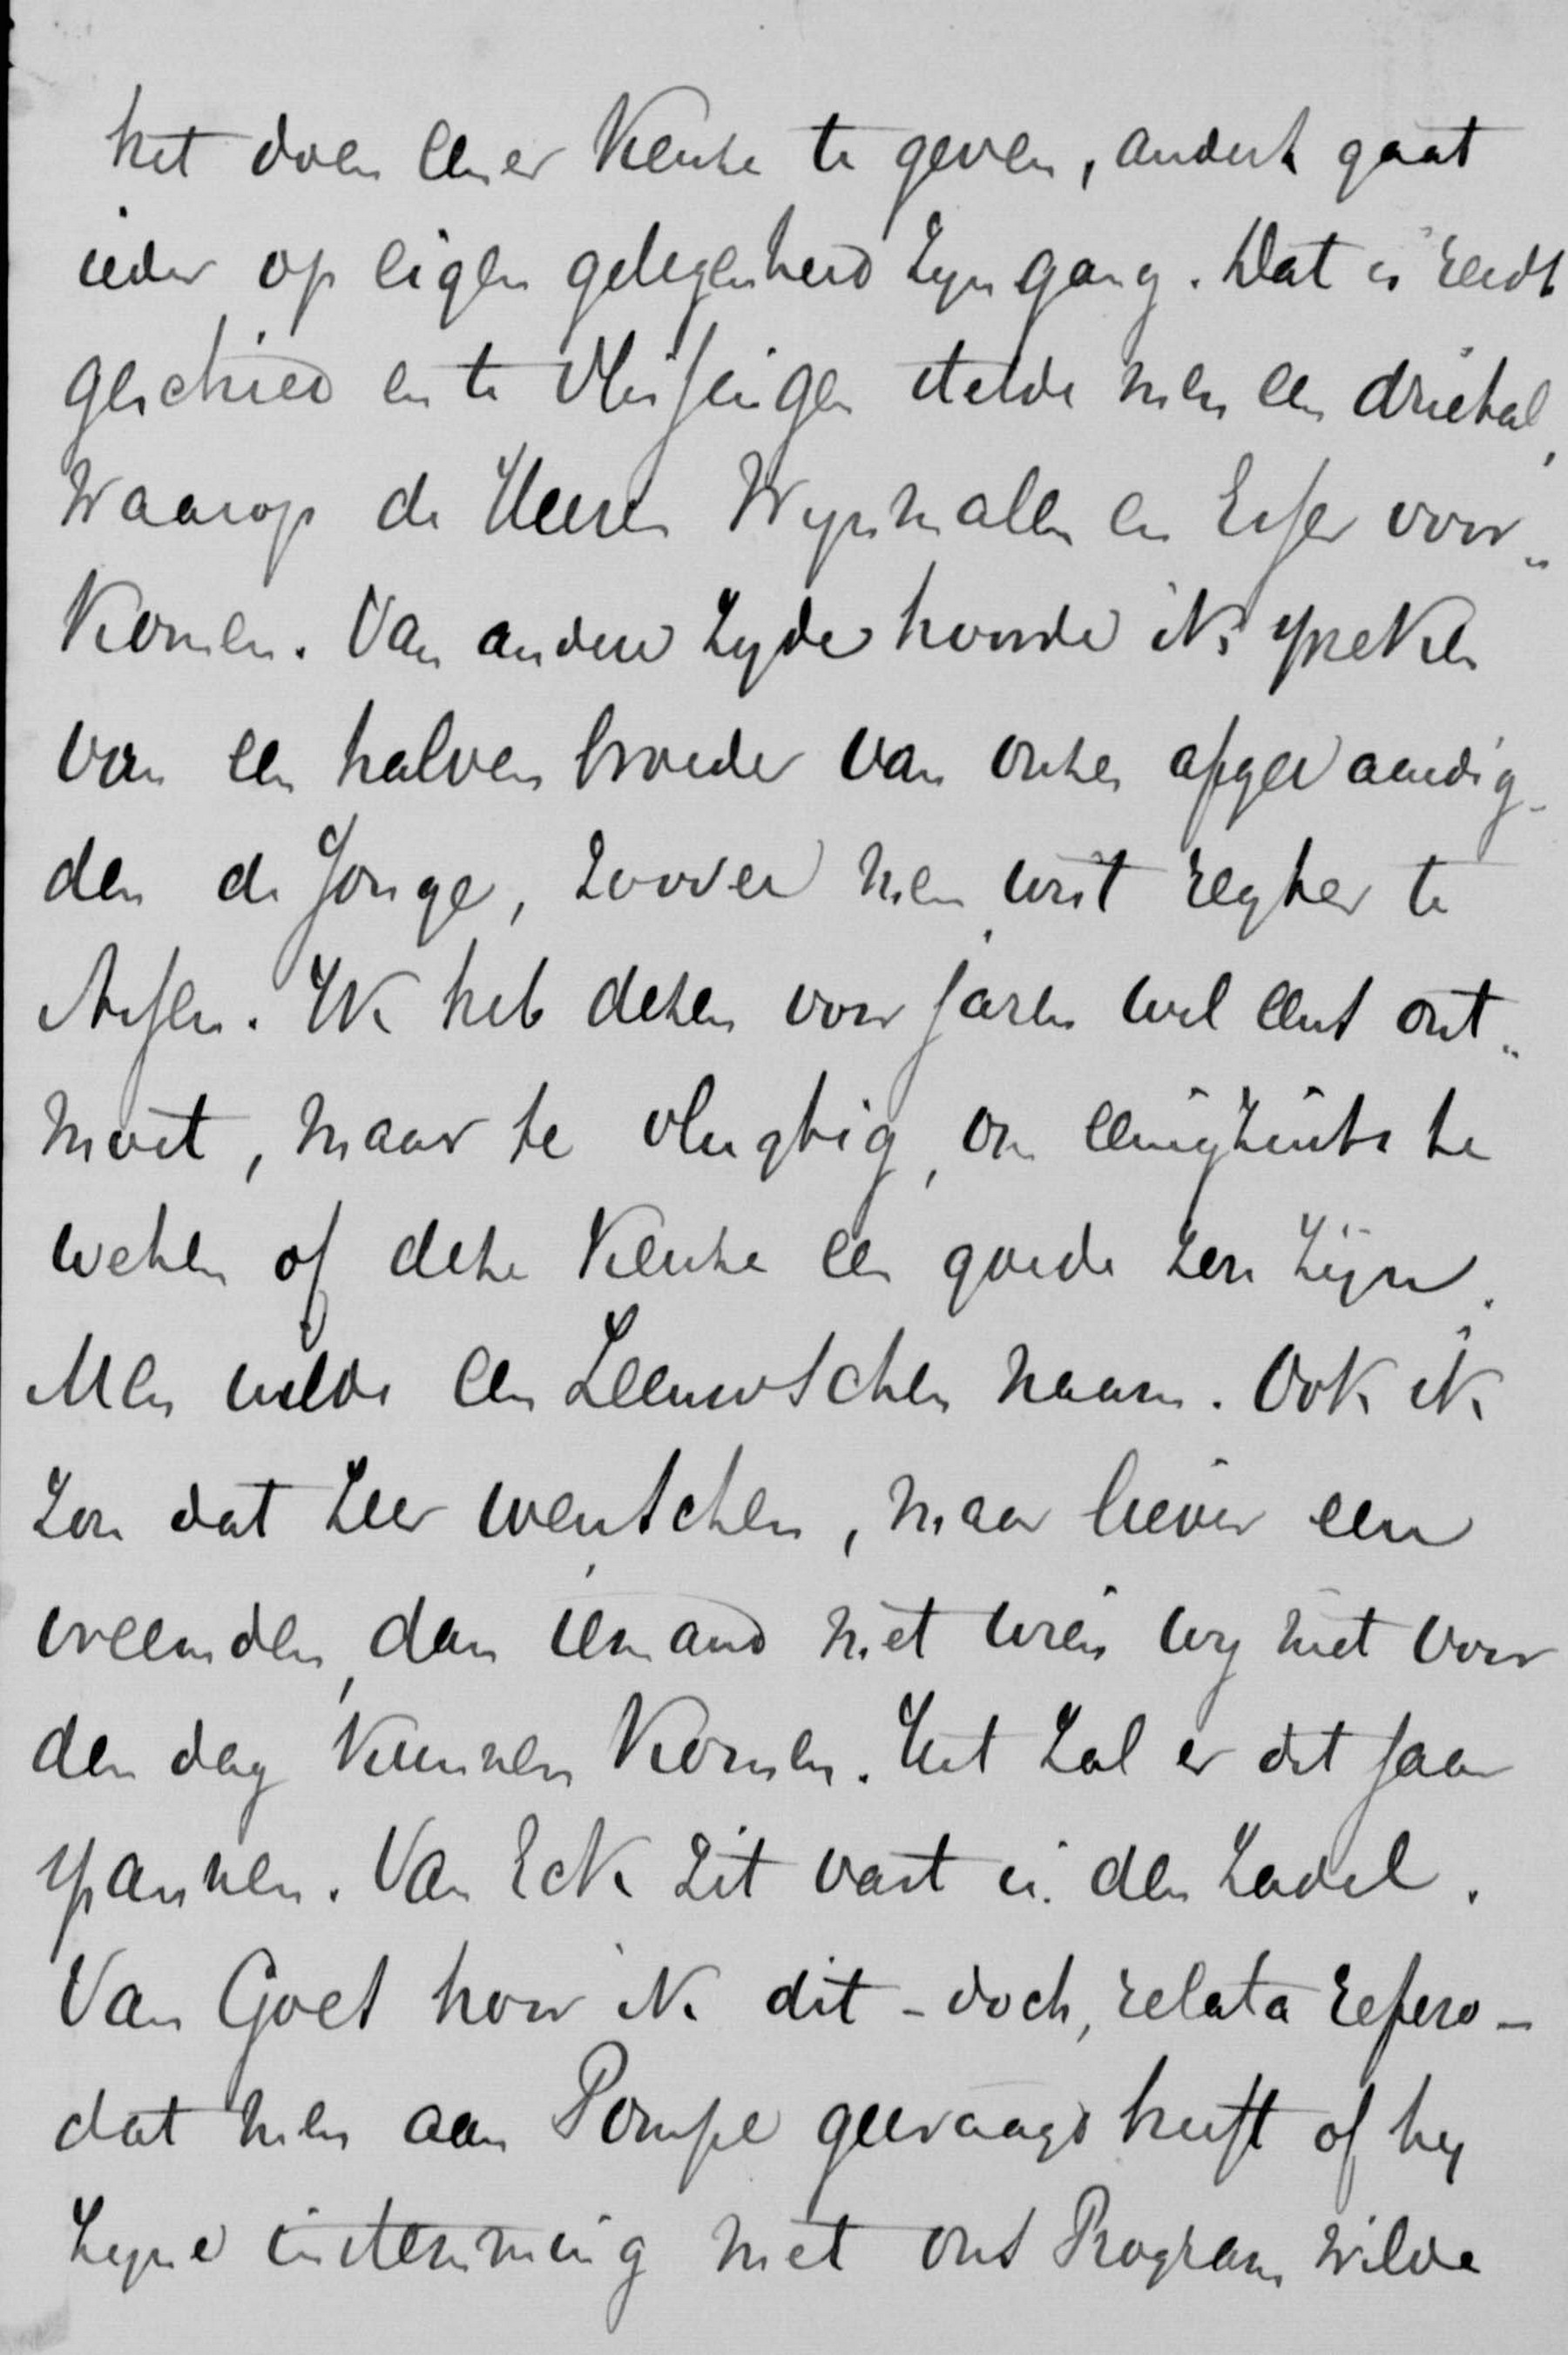 het doen eener keuze te geven, anders gaat
ieder op eigen gelegenheid zyn gang. Dat is reeds
geschied en te Vlissingen stelde men een drietal,
waarop de Heeren Wynmalen en Esser voor„
komen. Van andere zyde hoorde ik spreken
van een halven broeder van onzen afgevaardig-
den de Jonge, zoover men weet regter te
Assen. Ik heb dezen voor jaren wel eens ont„
moet, maar te vlugtig, om eenigzints te
weten of deze keuze een goede zou zijn.
Men wilde een Zeeuwschen naam. Ook ik
zou dat zeer wenschen, maar liever een
vreemden, dan iemand met wien wy niet voor
den dag kunnen komen. Het zal er dit jaar
spannen. Van Eck zit vast in den zadel.
Van Goes hoor ik dit - doch, relata refero -
dat men aan Pompe gevraagd heeft of hy
zyne instemming met ons Program wilde